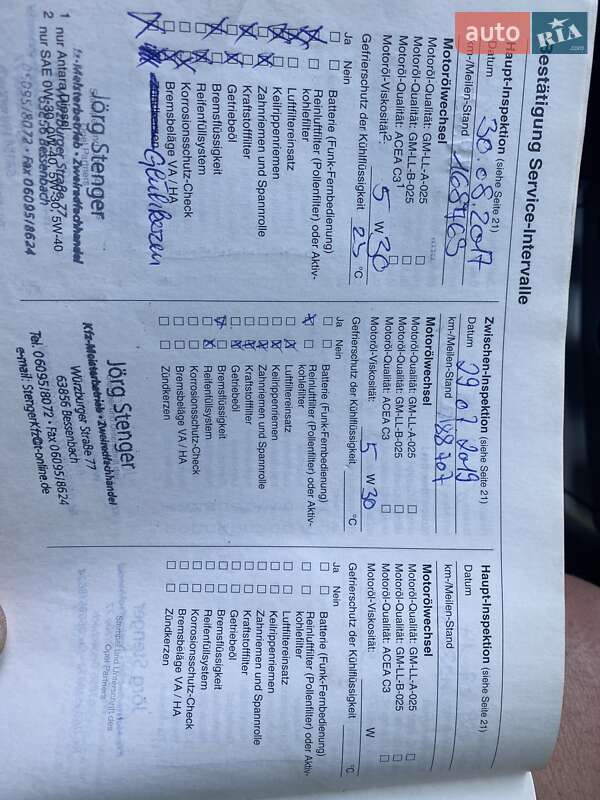 auto RIA .com
Bestätigung Service-Intervalle
Haupt-Inspektion (siehe Seite 21)
Datum 30.08.2017
km-/Meilen-Stand 168469
Motorölwechsel
Motoröl-Qualität: GM-LL-A-025
Motoröl-Qualität: GM-LL-B-025
Motoröl-Qualität: ACEA C3¹
Motoröl-Viskosität:² 5 W 30
Gefrierschutz der Kühlflüssigkeit 25 °C
Ja Nein
Batterie (Funk-Fernbedienung)
Reinluftfilter (Pollenfilter) oder Aktiv-
kohlefilter
Luftfiltereinsatz
Keilrippenriemen
Zahnriemen und Spannrolle
Kraftstofffilter
Getriebeöl
Bremsflüssigkeit
Reifenfüllsystem
Korrosionsschutz-Check
Bremsbeläge VA / HA
Glühkerzen
Jörg Stenger
Kfz-Meisterbetrieb • Zweiradfachhandel
Würzburger Straße 77
63856 Bessenbach
06095/8072 • Fax 06095/8624
1 nur Antara Diesel
2 nur SAE 0W-30, 0W-40, 5W-30, 5W-40
Zwischen-Inspektion (siehe Seite 21)
Datum 29.07.2019
km-/Meilen-Stand 188707
Motorölwechsel
Motoröl-Qualität: GM-LL-A-025
Motoröl-Qualität: GM-LL-B-025
Motoröl-Qualität: ACEA C3
Motoröl-Viskosität: 5 W 30
Gefrierschutz der Kühlflüssigkeit °C
Ja Nein
Batterie (Funk-Fernbedienung)
Reinluftfilter (Pollenfilter) oder Aktiv-
kohlefilter
Luftfiltereinsatz
Keilrippenriemen
Zahnriemen und Spannrolle
Kraftstofffilter
Getriebeöl
Bremsflüssigkeit
Reifenfüllsystem
Korrosionsschutz-Check
Bremsbeläge VA / HA
Zündkerzen
Jörg Stenger
Kfz-Meisterbetrieb • Zweiradfachhandel
Würzburger Straße 77
63856 Bessenbach
Tel. 06095/8072 • Fax 06095/8624
e-mail: StengerKfz@t-online.de
Haupt-Inspektion (siehe Seite 21)
Datum
km-/Meilen-Stand
Motorölwechsel
Motoröl-Qualität: GM-LL-A-025
Motoröl-Qualität: GM-LL-B-025
Motoröl-Qualität: ACEA C3
Motoröl-Viskosität: W
Gefrierschutz der Kühlflüssigkeit °C
Ja Nein
Batterie (Funk-Fernbedienung)
Reinluftfilter (Pollenfilter) oder Aktiv-
kohlefilter
Luftfiltereinsatz
Keilrippenriemen
Zahnriemen und Spannrolle
Kraftstofffilter
Getriebeöl
Bremsflüssigkeit
Reifenfüllsystem
Korrosionsschutz-Check
Bremsbeläge VA / HA
Zündkerzen
Stempel und Unterschrift des
Opel Partners